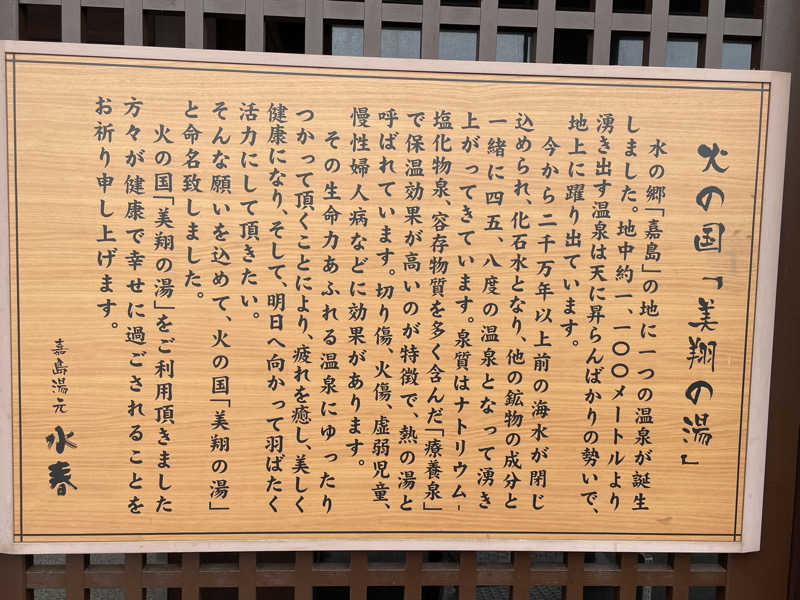 火の国「美翔の湯」
水の郷「嘉島」の地に一つの温泉が誕生
しました。地中約一、一〇〇メートルより
湧き出す温泉は天に昇らんばかりの勢いで、
地上に躍り出ています。
今から二千万年以上前の海水が閉じ
込められ、化石水となり、他の鉱物の成分と
一緒に四五、八度の温泉となって湧き
上がってきています。泉質はナトリウム-
塩化物泉、容存物質を多く含んだ「療養泉」
で保温効果が高いのが特徴で、熱の湯と
呼ばれています。切り傷、火傷、虚弱児童、
慢性婦人病などに効果があります。
その生命力あふれる温泉にゆったり
つかって頂くことにより、疲れを癒し、美しく
健康になり、そして、明日へ向かって羽ばたく
活力にして頂きたい。
そんな願いを込めて、火の国「美翔の湯」
と命名致しました。
火の国「美翔の湯」をご利用頂きました
方々が健康で幸せに過ごされることを
お祈り申し上げます。
嘉島湯元 水春